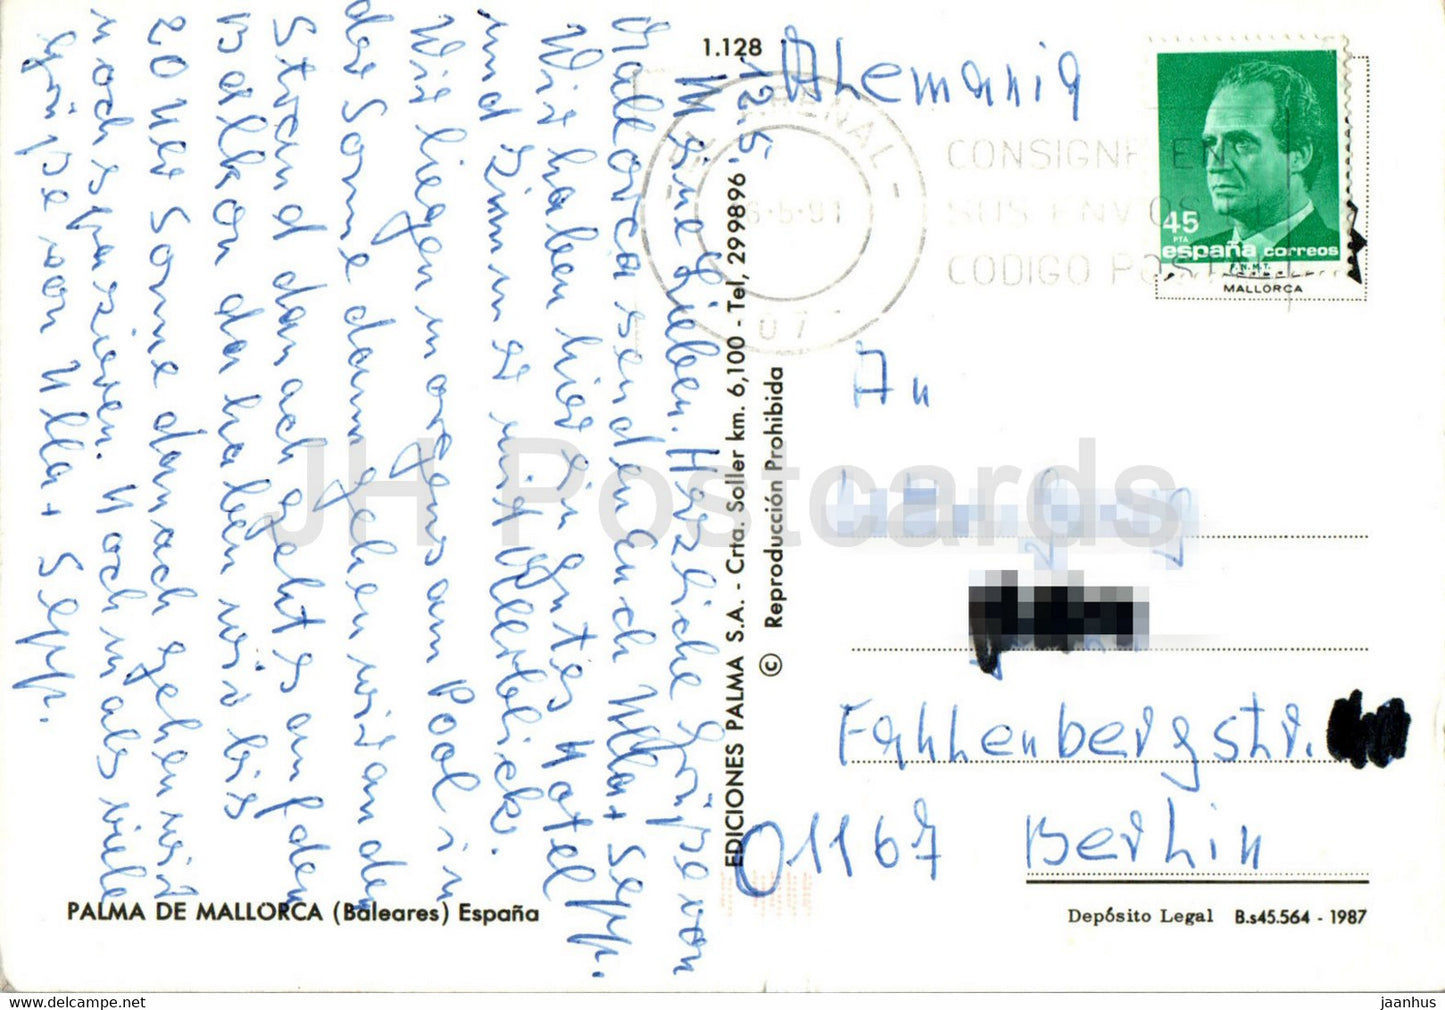 12.5.
Meine Lieben. Herzliche Grüpe von
Mallorca senden Euch Ulla + Sepp.
Wir haben hier ein gutes Hotel
und Zimmer mit Meerblick.
Wir liegen morgens am Pool in
der Sonne dann gehen wir an den
Strand danach geht es auf den
Balkon da haben wir bis
20 Uhr Sonne danach gehen wir
noch spazieren. Nochmals viele
Grüpe von Ulla + Sepp.
PALMA DE MALLORCA (Baleares) España
1.128
EDICIONES PALMA S.A. - Crta. Soller km. 6,100 - Tel, 299896
© Reproducción Prohibida
Alemania
ARENAL
6-5-91
07
CONSIGNE EN
SUS ENVIOS EL
CODIGO POSTAL
45
PTA
españa correos
F.N.M.T.
MALLORCA
An
Fahlenbergstr.
01167 Berlin
Depósito Legal B.s45.564 - 1987
JH Postcards
jaanhus